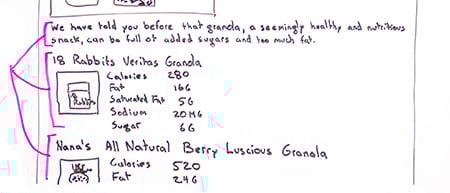 We have told you before that granola, a seemingly healthy and nutritious
snack, can be full of added sugars and too much fat.
18 Rabbits Veritas Granola
Calories 280
Fat 16G
Saturated Fat 5G
Sodium 20MG
Sugar 6G
Nana's All Natural Berry Luscious Granola
Calories 520
Fat 24G